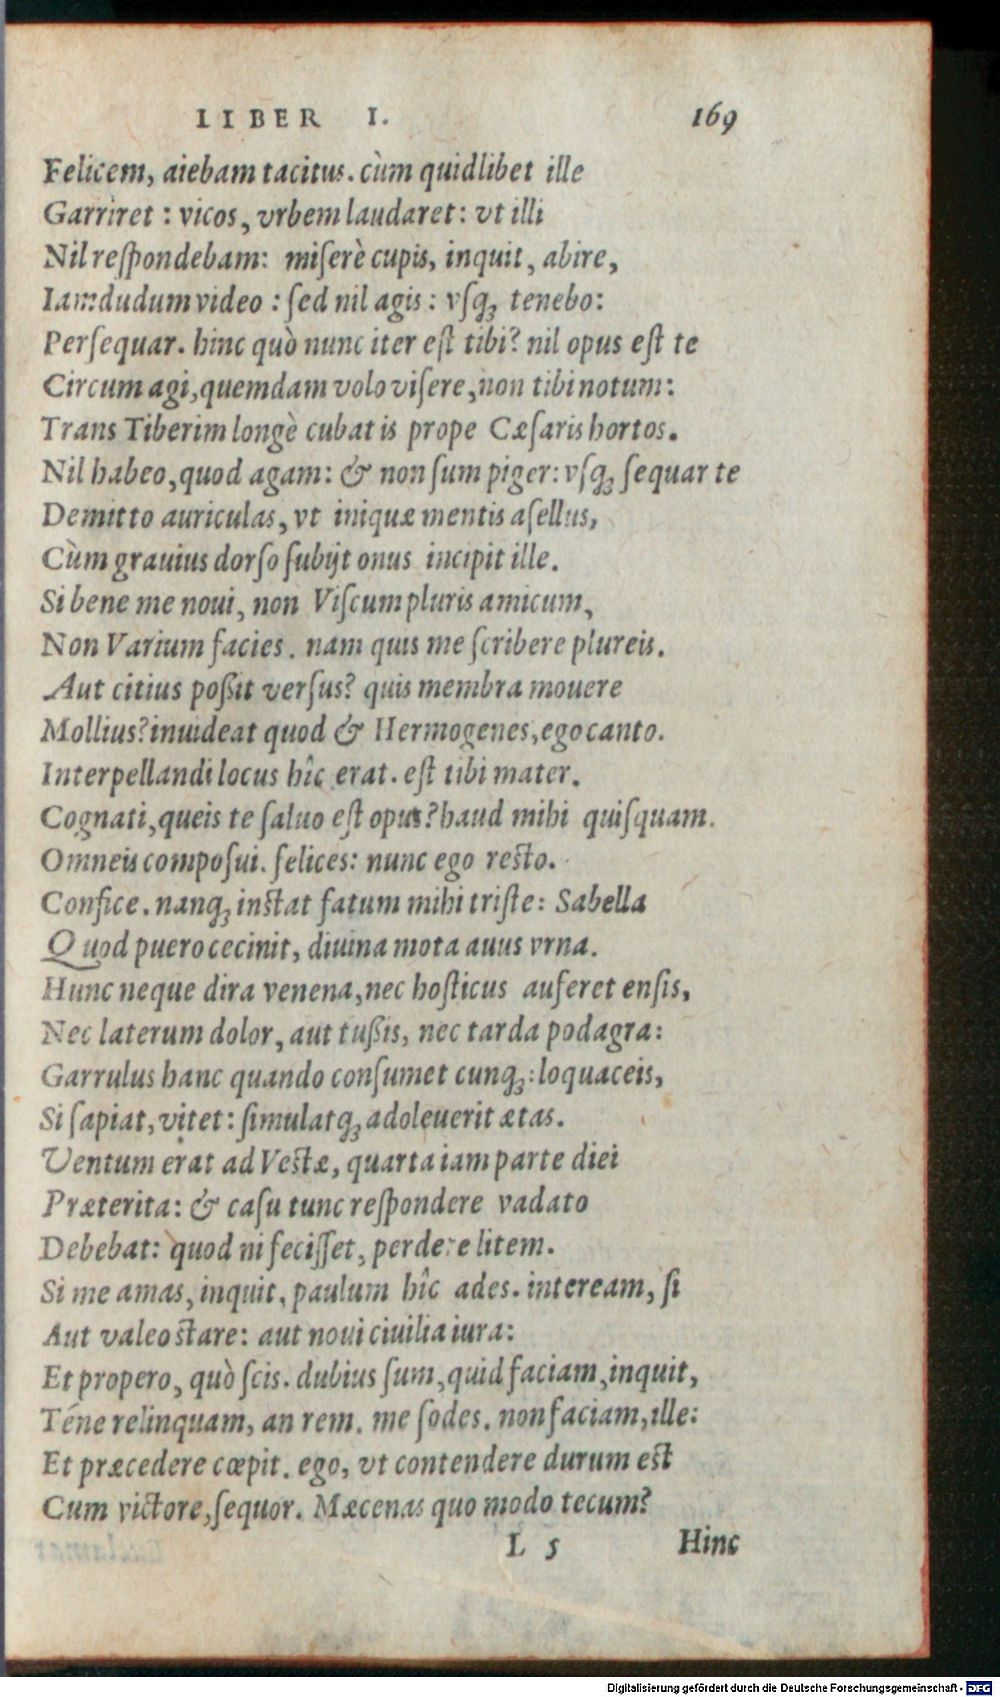 LIBER I. 169
Felicem, aiebam tacitus. cùm quidlibet ille
Garriret : vicos, vrbem laudaret: vt illi
Nil respondebam: miserè cupis, inquit, abire,
Iamdudum video : sed nil agis : vsq; tenebo:
Persequar. hinc quò nunc iter est tibi? nil opus est te
Circum agi, quemdam volo visere, non tibi notum:
Trans Tiberim longè cubat is prope Cæsaris hortos.
Nil habeo, quod agam: & non sum piger: vsq; sequar te
Demitto auriculas, vt iniquæ mentis asellus,
Cùm grauius dorso subijt onus incipit ille.
Si bene me noui, non Viscum pluris amicum,
Non Varium facies. nam quis me scribere plureis.
Aut citius poßit versus? quis membra mouere
Mollius? inuideat quod & Hermogenes, ego canto.
Interpellandi locus hîc erat. est tibi mater.
Cognati, queis te saluo est opus? haud mihi quisquam.
Omneis composui. felices: nunc ego resto.
Confice. nanq; instat fatum mihi triste: Sabella
Quod puero cecinit, diuina mota auus vrna.
Hunc neque dira venena, nec hosticus auferet ensis,
Nec laterum dolor, aut tußis, nec tarda podagra:
Garrulus hanc quando consumet cunq;: loquaceis,
Si sapiat, vitet: simulatq; adoleuerit ætas.
Ventum erat ad Vestæ, quarta iam parte diei
Præterita: & casu tunc respondere vadato
Debebat: quod ni fecisset, perdere litem.
Si me amas, inquit, paulum hîc ades. inteream, si
Aut valeo stare: aut noui ciuilia iura:
Et propero, quò scis. dubius sum, quid faciam, inquit,
Téne relinquam, an rem. me sodes. non faciam, ille:
Et præcedere cœpit. ego, vt contendere durum est
Cum victore, sequor. Mæcenas quo modo tecum?
L 5 Hinc
Digitalisierung gefördert durch die Deutsche Forschungsgemeinschaft - DFG